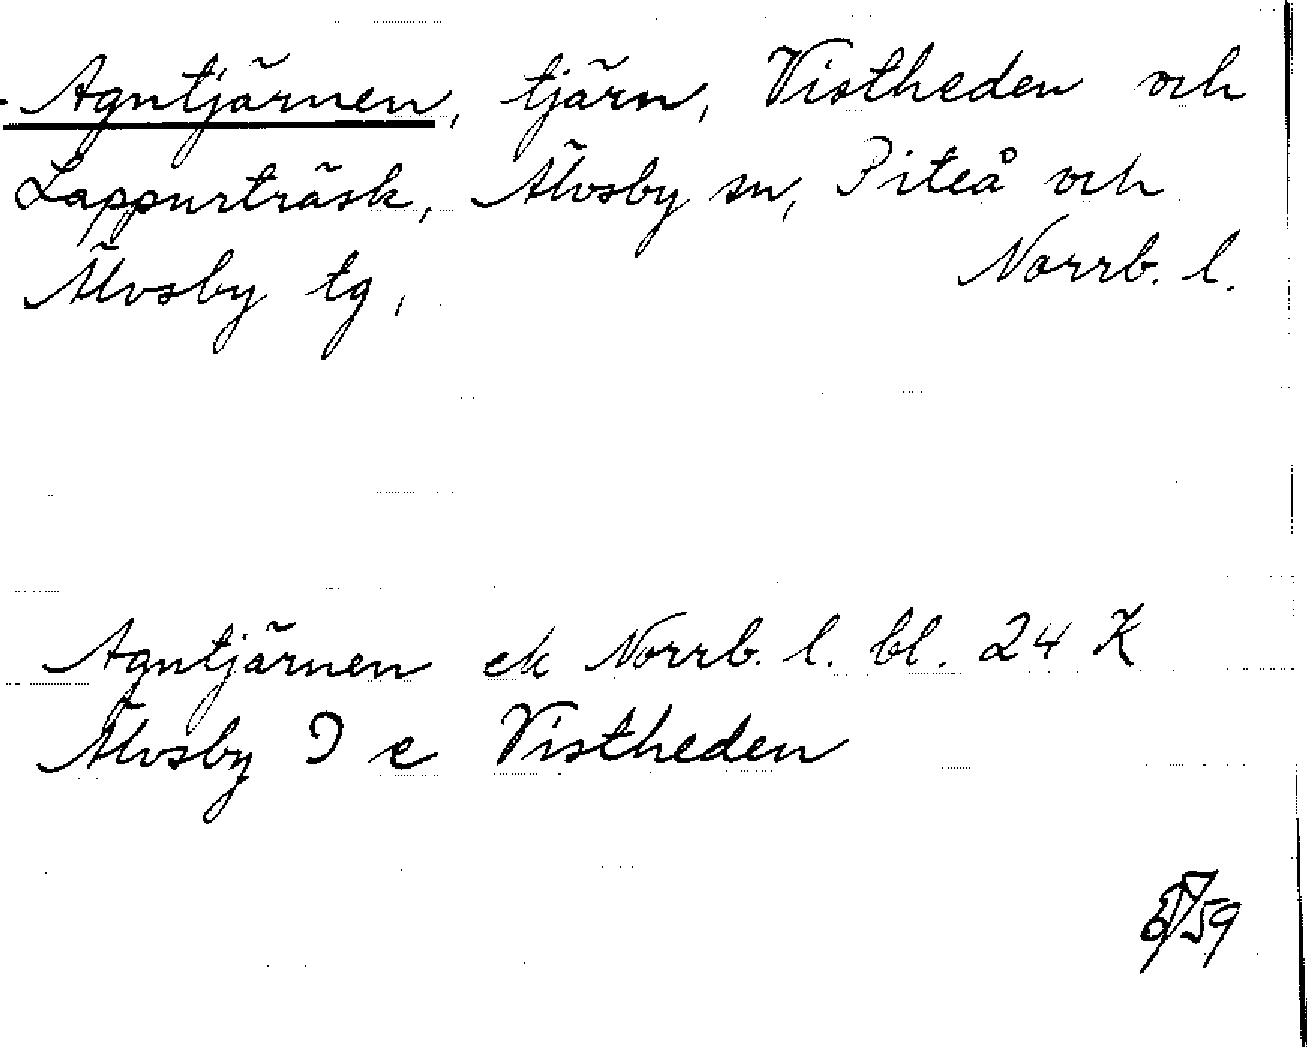 Agntjärnen, tjärn, Vistheden och
Lappurträsk, Älvsby sn, Piteå och
Älvsby tg,
Norrb. l.
Agntjärnen ek Norrb. l. bl. 24 K
Älvsby I e Vistheden
59